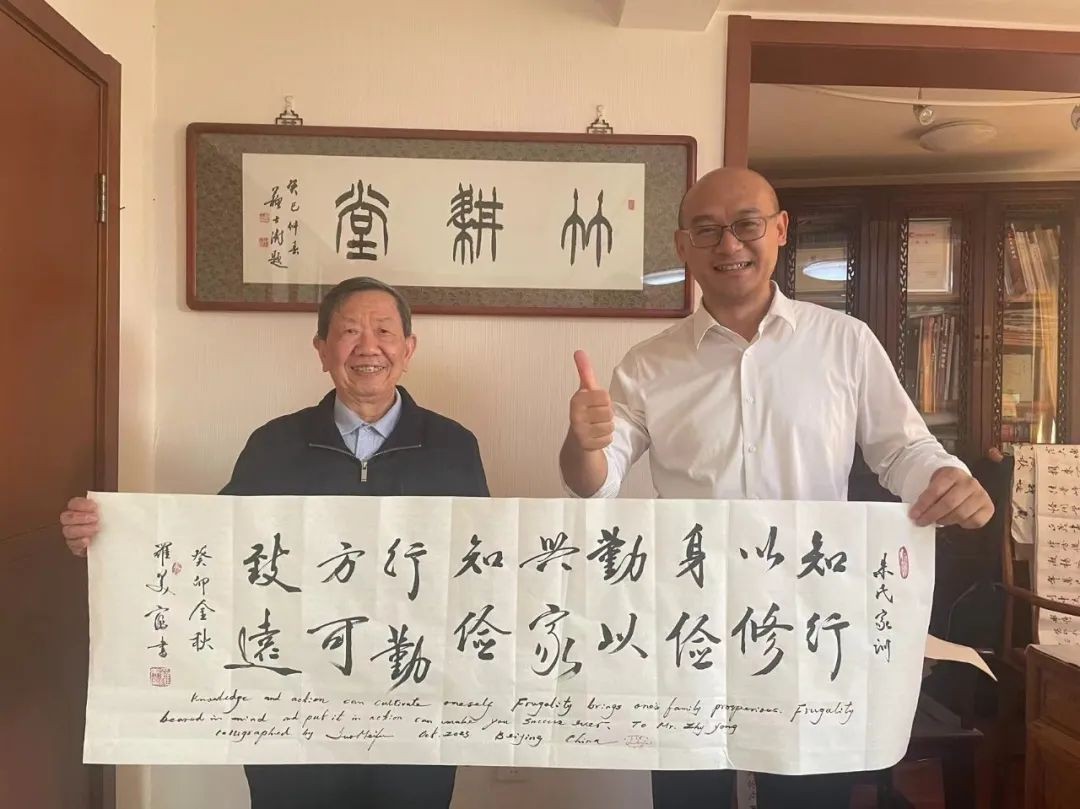 竹耕堂
癸巳仲春
蘇士澍题
朱氏家训
知行
以修
身俭
勤以
兴家
知俭
行勤
方可
致遠
癸卯金秋
羅美富書
Knowledge and action can cultivate oneself Frugality brings one's family prosperious. Frugality
beared in mind and put it in action can make you success ever. To Mr. Zhu Yong
calligraphed by Luo Meifu Oct. 2023 Beijing China